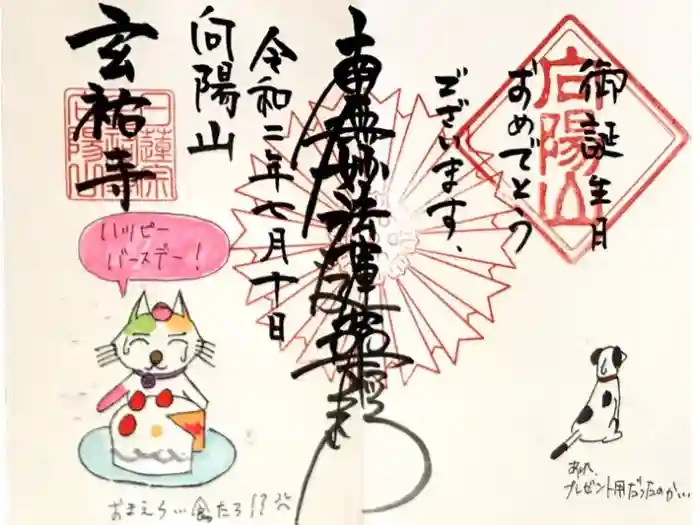 御誕生日
おめでとう
ございます、
向陽山
南無妙法蓮華経
令和二年七月十日
向陽山
玄祐寺
日蓮宗
ハッピー
バースデー!
プレゼント用だったのか…